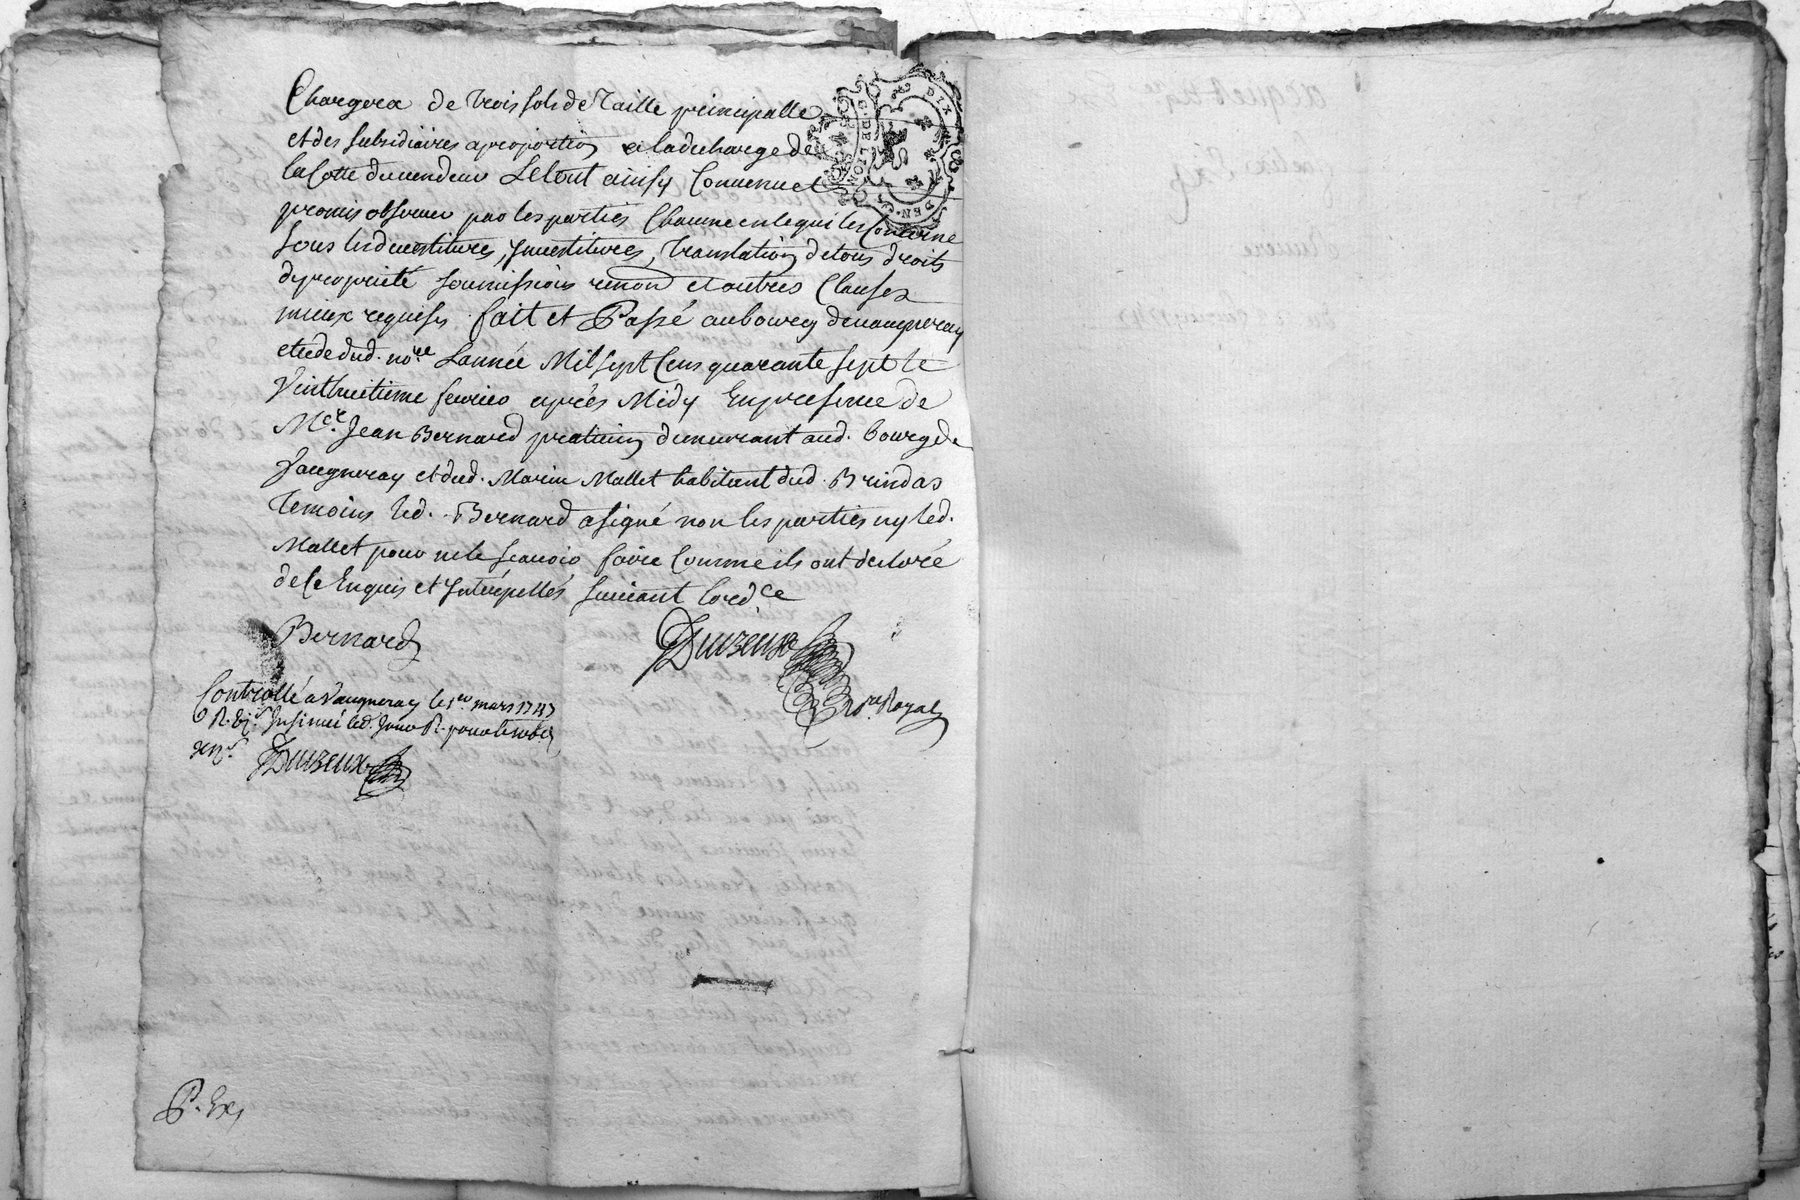 Chargera de trois sols de Taille principalle
et des subsidiaires a proportion a la decharge de
la Cotte du vendeur Le tout ainsy Convenu et
promis observer par les parties Chacune en le qui les Concerne
sous les devestitures, Jnvestitures, translation de tous droits
de proprieté soumissions renon et autres Clauses
mieux requises. fait et Passé au bourg de vaugneray
etude dud. nore. L'année Mil sept Cens quarante sept le
Vint huitieme fevrier après Midy En presence de
Mer. Jean Bernard praticien demeurant aud. bourg de
Vaugneray et dud. Marin Mallet habitant dud. Brindas
temoins led. Bernard a signé non les parties ny led.
Mallet pour ne le scavoir faire Comme ils ont declaré
de Ce Enquis et Jnterpellés suivant lordce
Bernard
Duvzeux
nore. Royal
Controllé a Vaugneray le 1er mars 1747
R. Jnsinué led. Jour R. pour le
Duvzeux
P. Ex,
GEN. DE LION
DIX DEN.